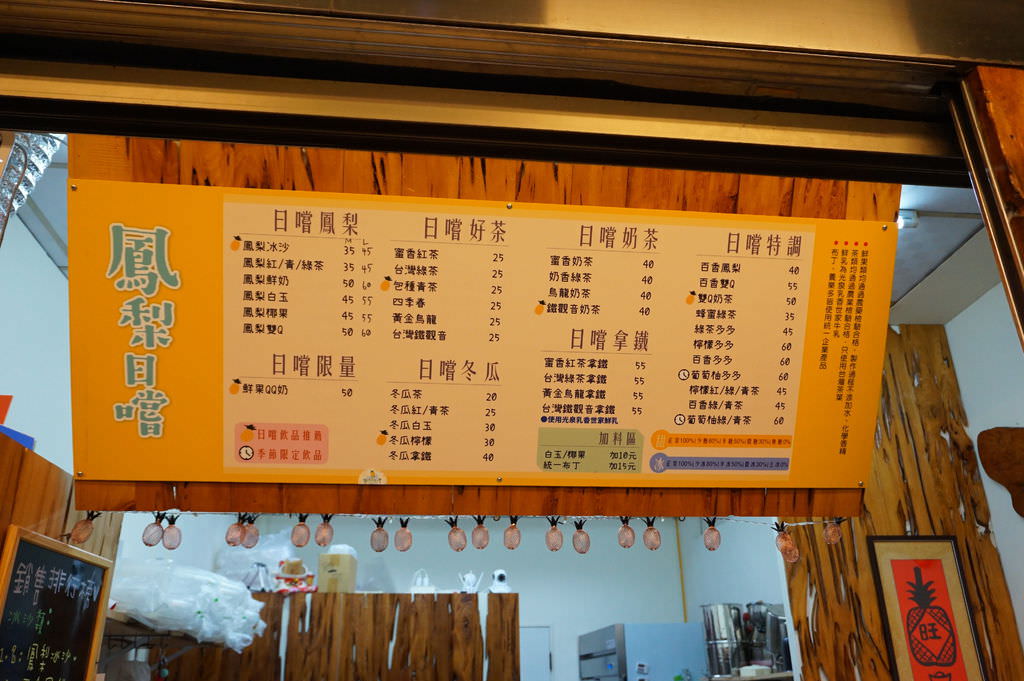 鳳梨日嚐
日嚐鳳梨
M L
鳳梨冰沙 35 45
鳳梨紅/青/綠茶 35 45
鳳梨鮮奶 50 60
鳳梨白玉 45 55
鳳梨椰果 45 55
鳳梨雙Q 50 60
日嚐限量
鮮果QQ奶 50
日嚐飲品推薦
季節限定飲品
日嚐好茶
蜜香紅茶 25
台灣綠茶 25
包種青茶 25
四季春 25
黃金烏龍 25
台灣鐵觀音 25
日嚐冬瓜
冬瓜茶 20
冬瓜紅/青茶 25
冬瓜白玉 30
冬瓜檸檬 30
冬瓜拿鐵 40
日嚐奶茶
蜜香奶茶 40
奶香綠茶 40
烏龍奶茶 40
鐵觀音奶茶 40
日嚐拿鐵
蜜香紅茶拿鐵 55
台灣綠茶拿鐵 55
黃金烏龍拿鐵 55
台灣鐵觀音拿鐵 55
●使用光泉乳香世家鮮乳
加料區
白玉/椰果 加10元
統一布丁 加15元
日嚐特調
百香鳳梨 40
百香雙Q 55
雙Q奶茶 50
蜂蜜綠茶 35
綠茶多多 50
檸檬多多 60
百香多多 60
葡萄柚多多 60
檸檬紅/綠/青茶 45
百香綠/青茶 45
葡萄柚綠/青茶 60
冰
鮮果類均通過農藥檢驗合格，製作過程不添加水、化學香精
茶類均通過農藥檢驗合格，只使用台灣茶葉
鮮乳為光泉乳香世家牛乳
布丁、養樂多皆使用統一企業產品
銷售排行榜
冰沙類:
鳳梨冰沙
旺